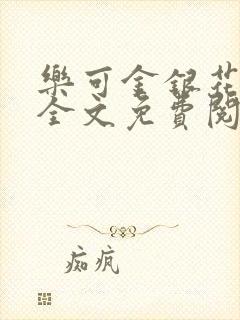 樂可金銀花
全文免費閱
痴瘋